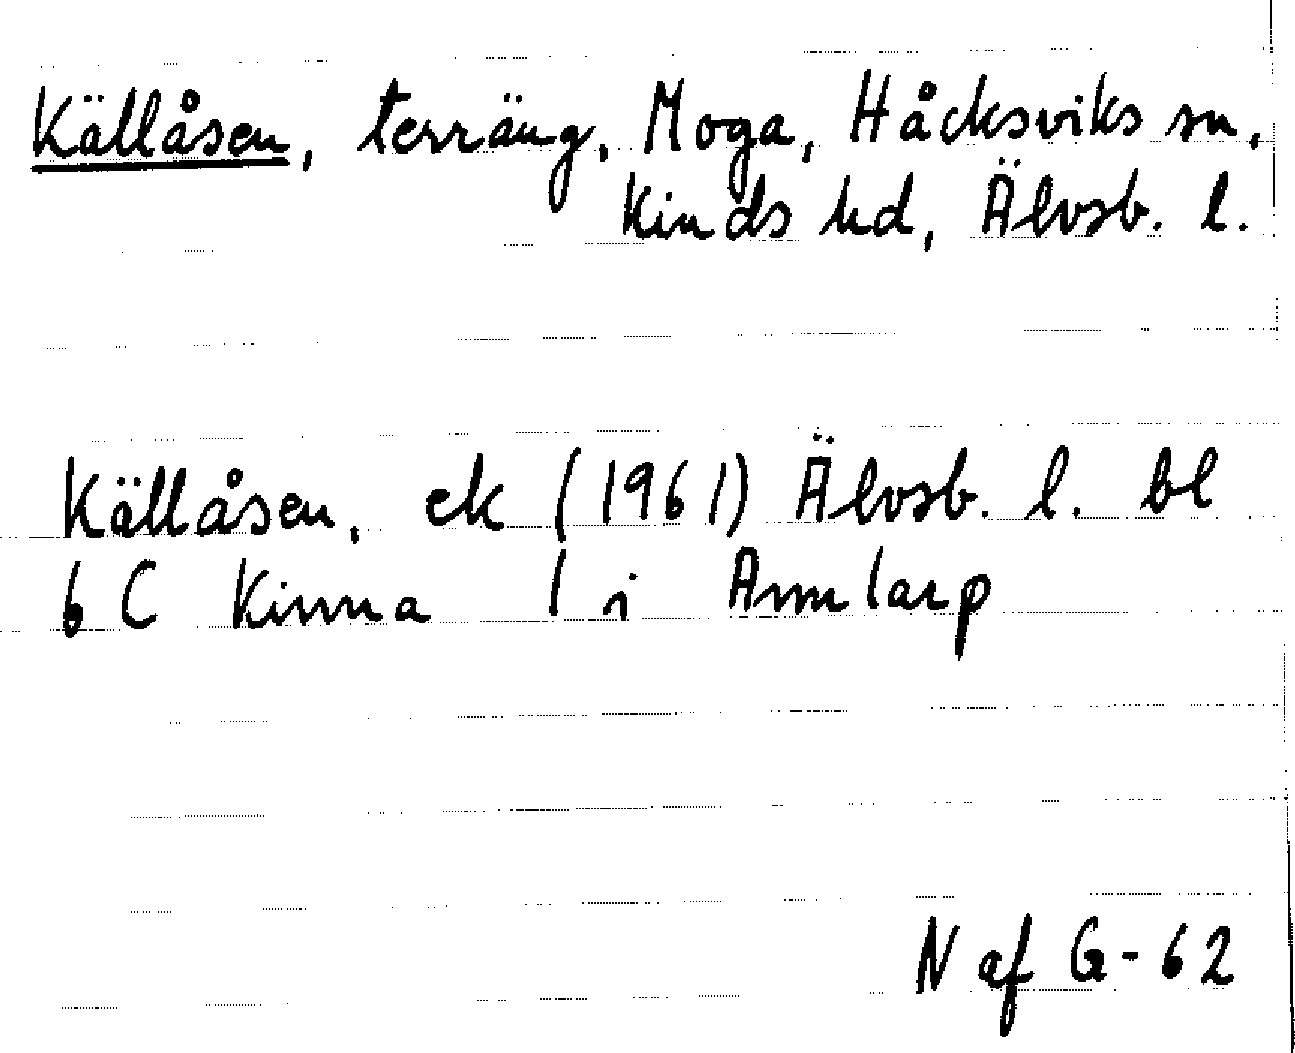 Källåsen, terräng, Moga, Håcksviks sn,
Kinds hd, Älvsb. l.
Källåsen, ek (1961) Älvsb. l. bl
6 C Kinna l i Ammlarp
N af G-62